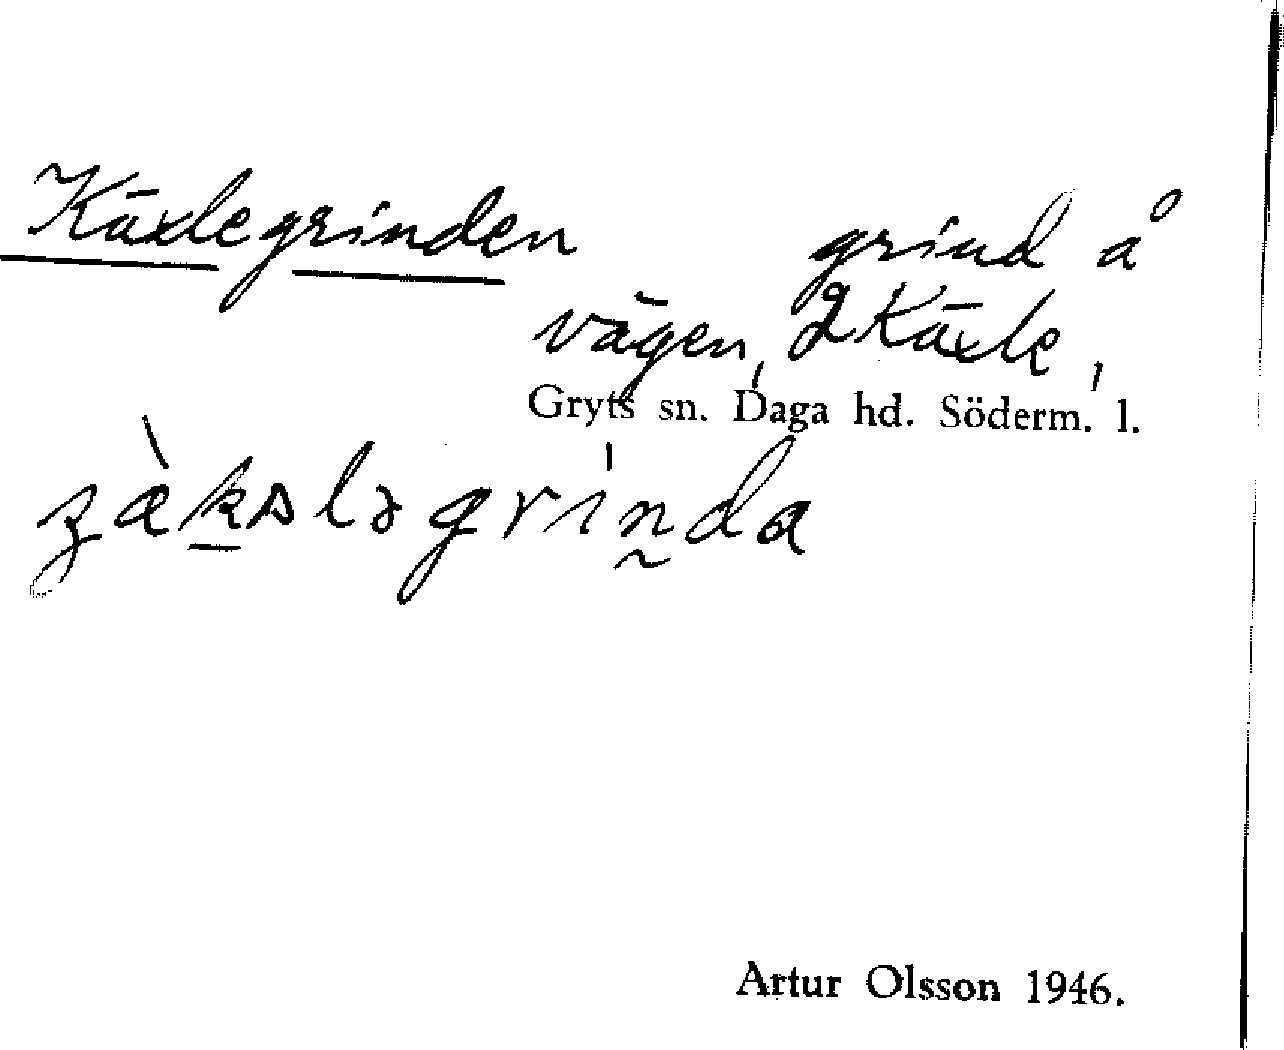 Käxlegrinden grind å
vägen, 2 Käxle,
Gryts sn. Daga hd. Söderm. l.
Artur Olsson 1946.